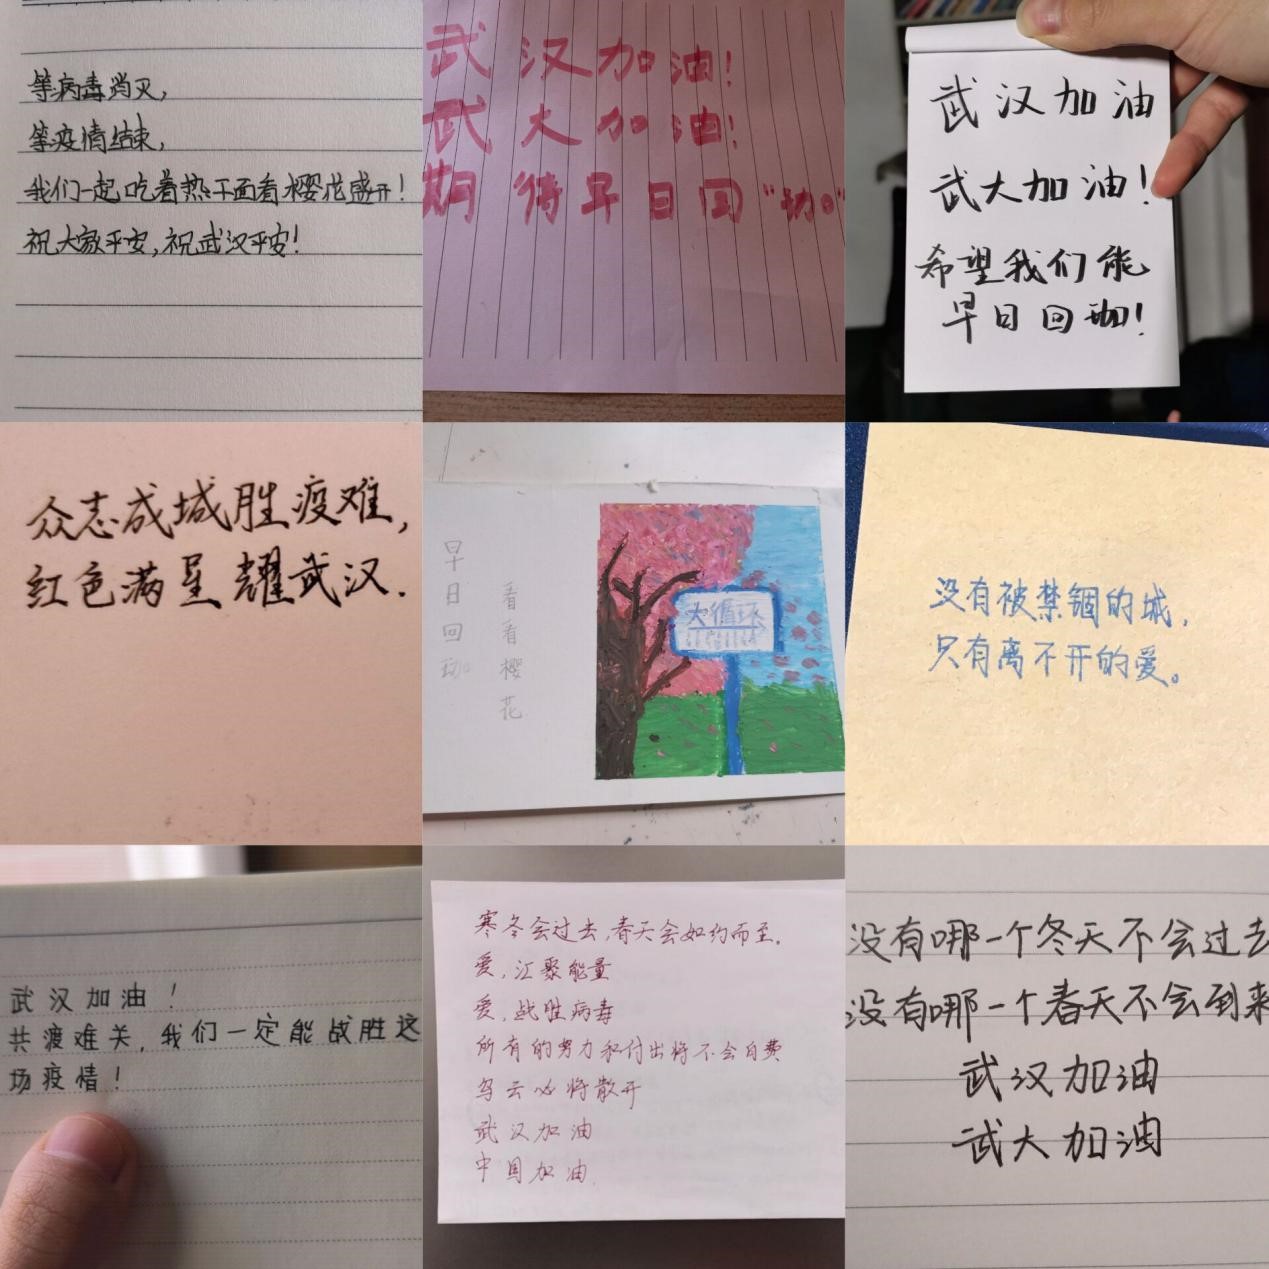 等病毒消灭，
等疫情结束，
我们一起吃着热干面看樱花盛开！
祝大家平安，祝武汉平安！
武汉加油！
武大加油！
期待早日回“珈”
武汉加油
武大加油！
希望我们能
早日回珈！
众志成城胜疫难，
红色满星耀武汉.
早日回珈
看看樱花
大循环
没有被禁锢的城，
只有离不开的爱。
武汉加油！
共渡难关，我们一定能战胜这
场疫情！
寒冬会过去，春天会如约而至.
爱，汇聚能量
爱，战胜病毒
所有的努力和付出将不会白费
乌云必将散开
武汉加油
中国加油.
没有哪一个冬天不会过去
没有哪一个春天不会到来
武汉加油
武大加油